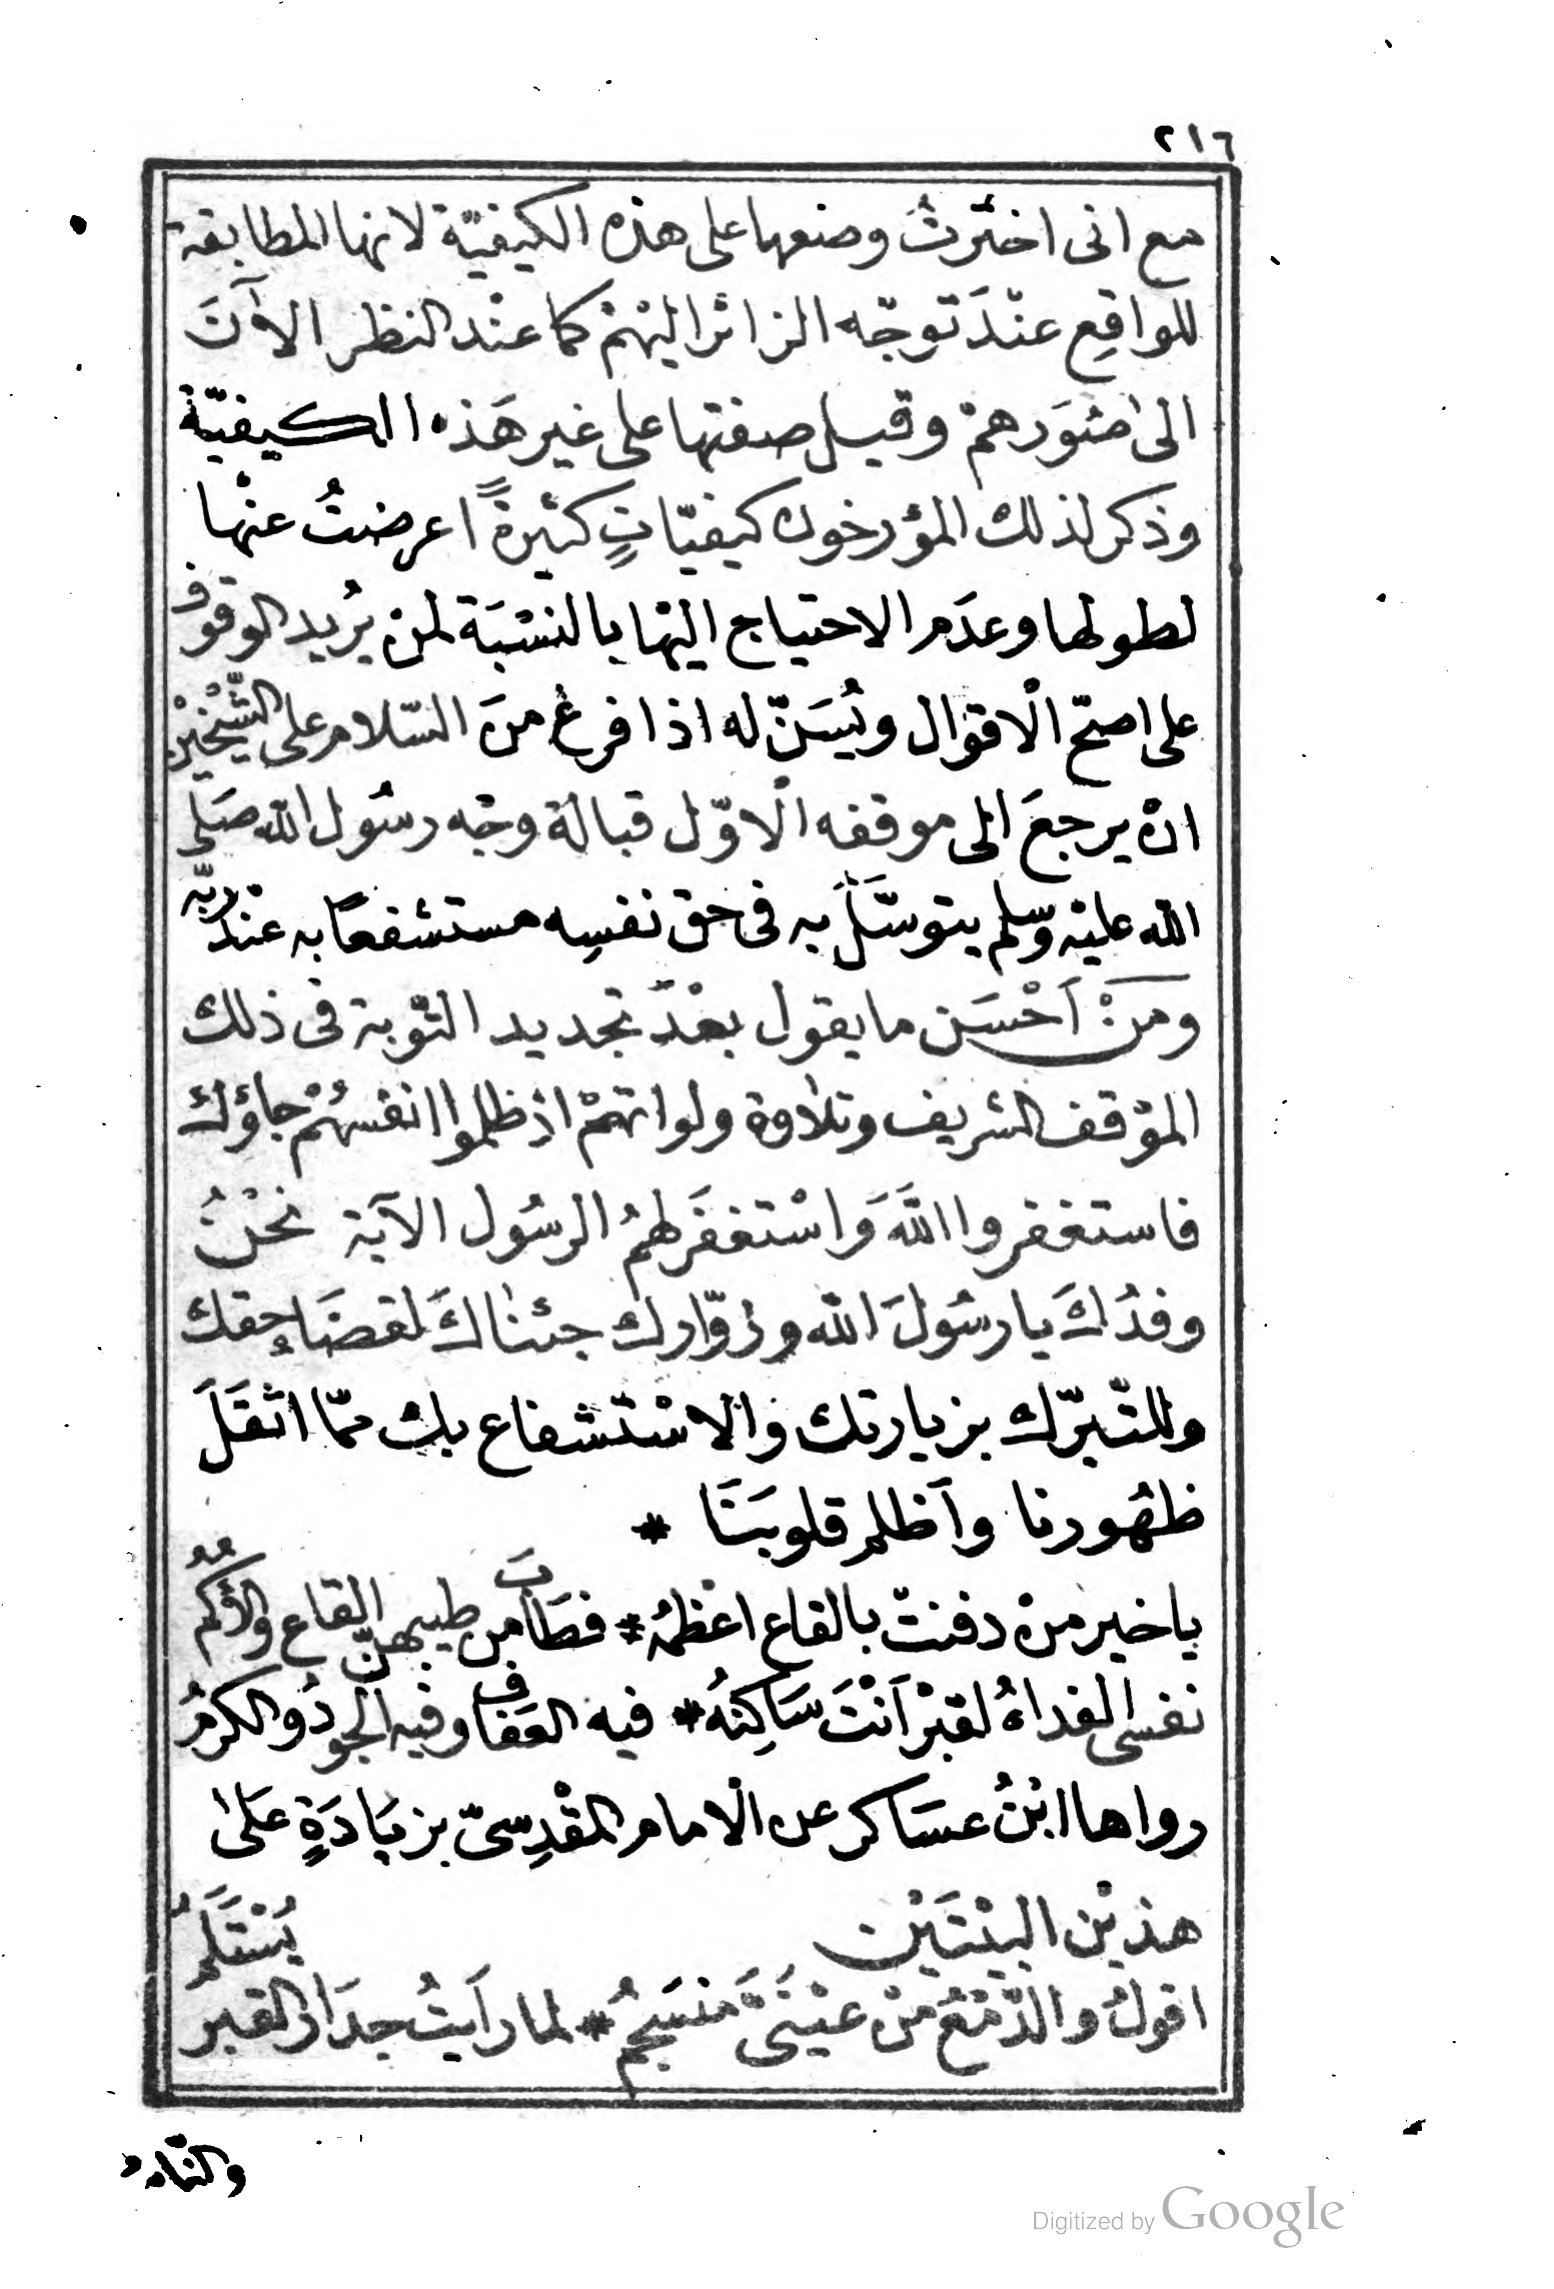 ٢١٦
مع انى اخترت وضعها على هذه الكيفيّة لانها المطابقة
للواقع عنْدَ توجّه الزائر اليْهمْ كما عنْد النظر الآن
الى صُوَرهمْ وقيل صفتها على غير هَذه الكيفيّة
وذكر لذلك المؤرخون كيفيّاتٍ كثيرةً اعرضتُ عنْها
لطولها وعدَم الاحتياج اليْها بالنسْبَة لمنْ يُريد الوقوف
على اصحّ الْاقوال ويُسَنّ له اذا فرغ منَ السّلام على الشّيْخيْن
انْ يرجعَ الى موقفه الْاوّل قبالة وجْه رسُول الله صَلى
الله عليْه وسّلم يتوسَّلَ به فى حق نفسِه مستشفعًا به عنْد ربّه
ومنْ اَحْسَن ما يقول بعْدَ تجديد التّوبة فى ذلك
الموْقف الشريف وتلاوة ولو انهمْ اذ ظلموا انفسهُمْ جاؤك
فاستغفروا اللهَ وَاسْتغفَر لهمُ الرسُول الآية نحْنُ
وفدُكَ يا رسُولَ الله وزوّارك جئناكَ لقضَاءِ حقك
وللتّبرّك بزيارتك والاسْتشفاع بك ممّا اثقَلَ
ظهُورنا واَظلم قلوبَنَا *
يا خير منْ دفنتْ بالقاع اعْظمُه * فطَابَ من طيبهنّ القاع والْاُكُمُ
نفسى الفداءُ لقبْر اَنْتَ سَاكِنُهُ * فيه العَفاف وفيه الجودُ والكرمُ
رواها ابْنُ عسَاكر عن الْامام المقْدِسىّ بزيَادَةٍ عَلىٰ
هذيْن البيْتَيْن يُسْتَلمُ
اقولُ والدّمْعُ منْ عيْنَىَّ منسَجمُ * لما رَايتُ جدَارَ القبر
والنّاس